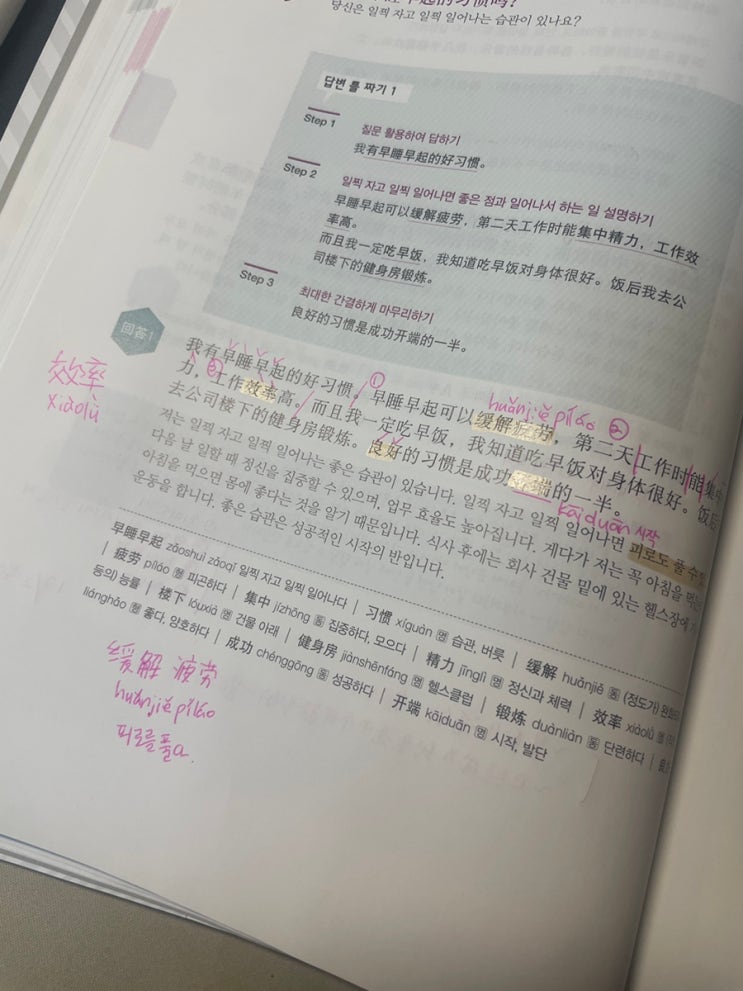 早起的习惯吗?
당신은 일찍 자고 일찍 일어나는 습관이 있나요?
답변 틀 짜기 1
Step 1
질문 활용하여 답하기
我有早睡早起的好习惯。
Step 2
일찍 자고 일찍 일어나면 좋은 점과 일어나서 하는 일 설명하기
早睡早起可以缓解疲劳，第二天工作时能集中精力，工作效
率高。
而且我一定吃早饭，我知道吃早饭对身体很好。饭后我去公
司楼下的健身房锻炼。
Step 3
최대한 간결하게 마무리하기
良好的习惯是成功开端的一半。
回答1
效率
xiàolǜ
huǎnjiě píláo ②
①
我有早睡早起的好习惯。早睡早起可以缓解疲劳，第二天工作时能集
③
力，工作效率高。而且我一定吃早饭，我知道吃早饭对身体很好。饭后
去公司楼下的健身房锻炼。良好的习惯是成功开端的一半。
kāiduān 시작
저는 일찍 자고 일찍 일어나는 좋은 습관이 있습니다. 일찍 자고 일찍 일어나면 피로도 풀 수
다음 날 일할 때 정신을 집중할 수 있으며, 업무 효율도 높아집니다. 게다가 저는 꼭 아침을 먹는
아침을 먹으면 몸에 좋다는 것을 알기 때문입니다. 식사 후에는 회사 건물 밑에 있는 헬스장에
운동을 합니다. 좋은 습관은 성공적인 시작의 반입니다.
早睡早起 zǎoshuì zǎoqǐ 일찍 자고 일찍 일어나다 | 习惯 xíguàn 명 습관, 버릇 | 缓解 huǎnjiě 동 (정도가) 완화되
| 疲劳 píláo 형 피곤하다 | 集中 jízhōng 동 집중하다, 모으다 | 精力 jīnglì 명 정신과 체력 | 效率 xiàolǜ 명
등의) 능률 | 楼下 lóuxià 명 건물 아래 | 健身房 jiànshēnfáng 명 헬스클럽 | 锻炼 duànliàn 동 단련하다 |
liánghǎo 형 좋다, 양호하다 | 成功 chénggōng 동 성공하다 | 开端 kāiduān 명 시작, 발단
缓解 疲劳
huǎnjiě píláo
피로를 풀다.